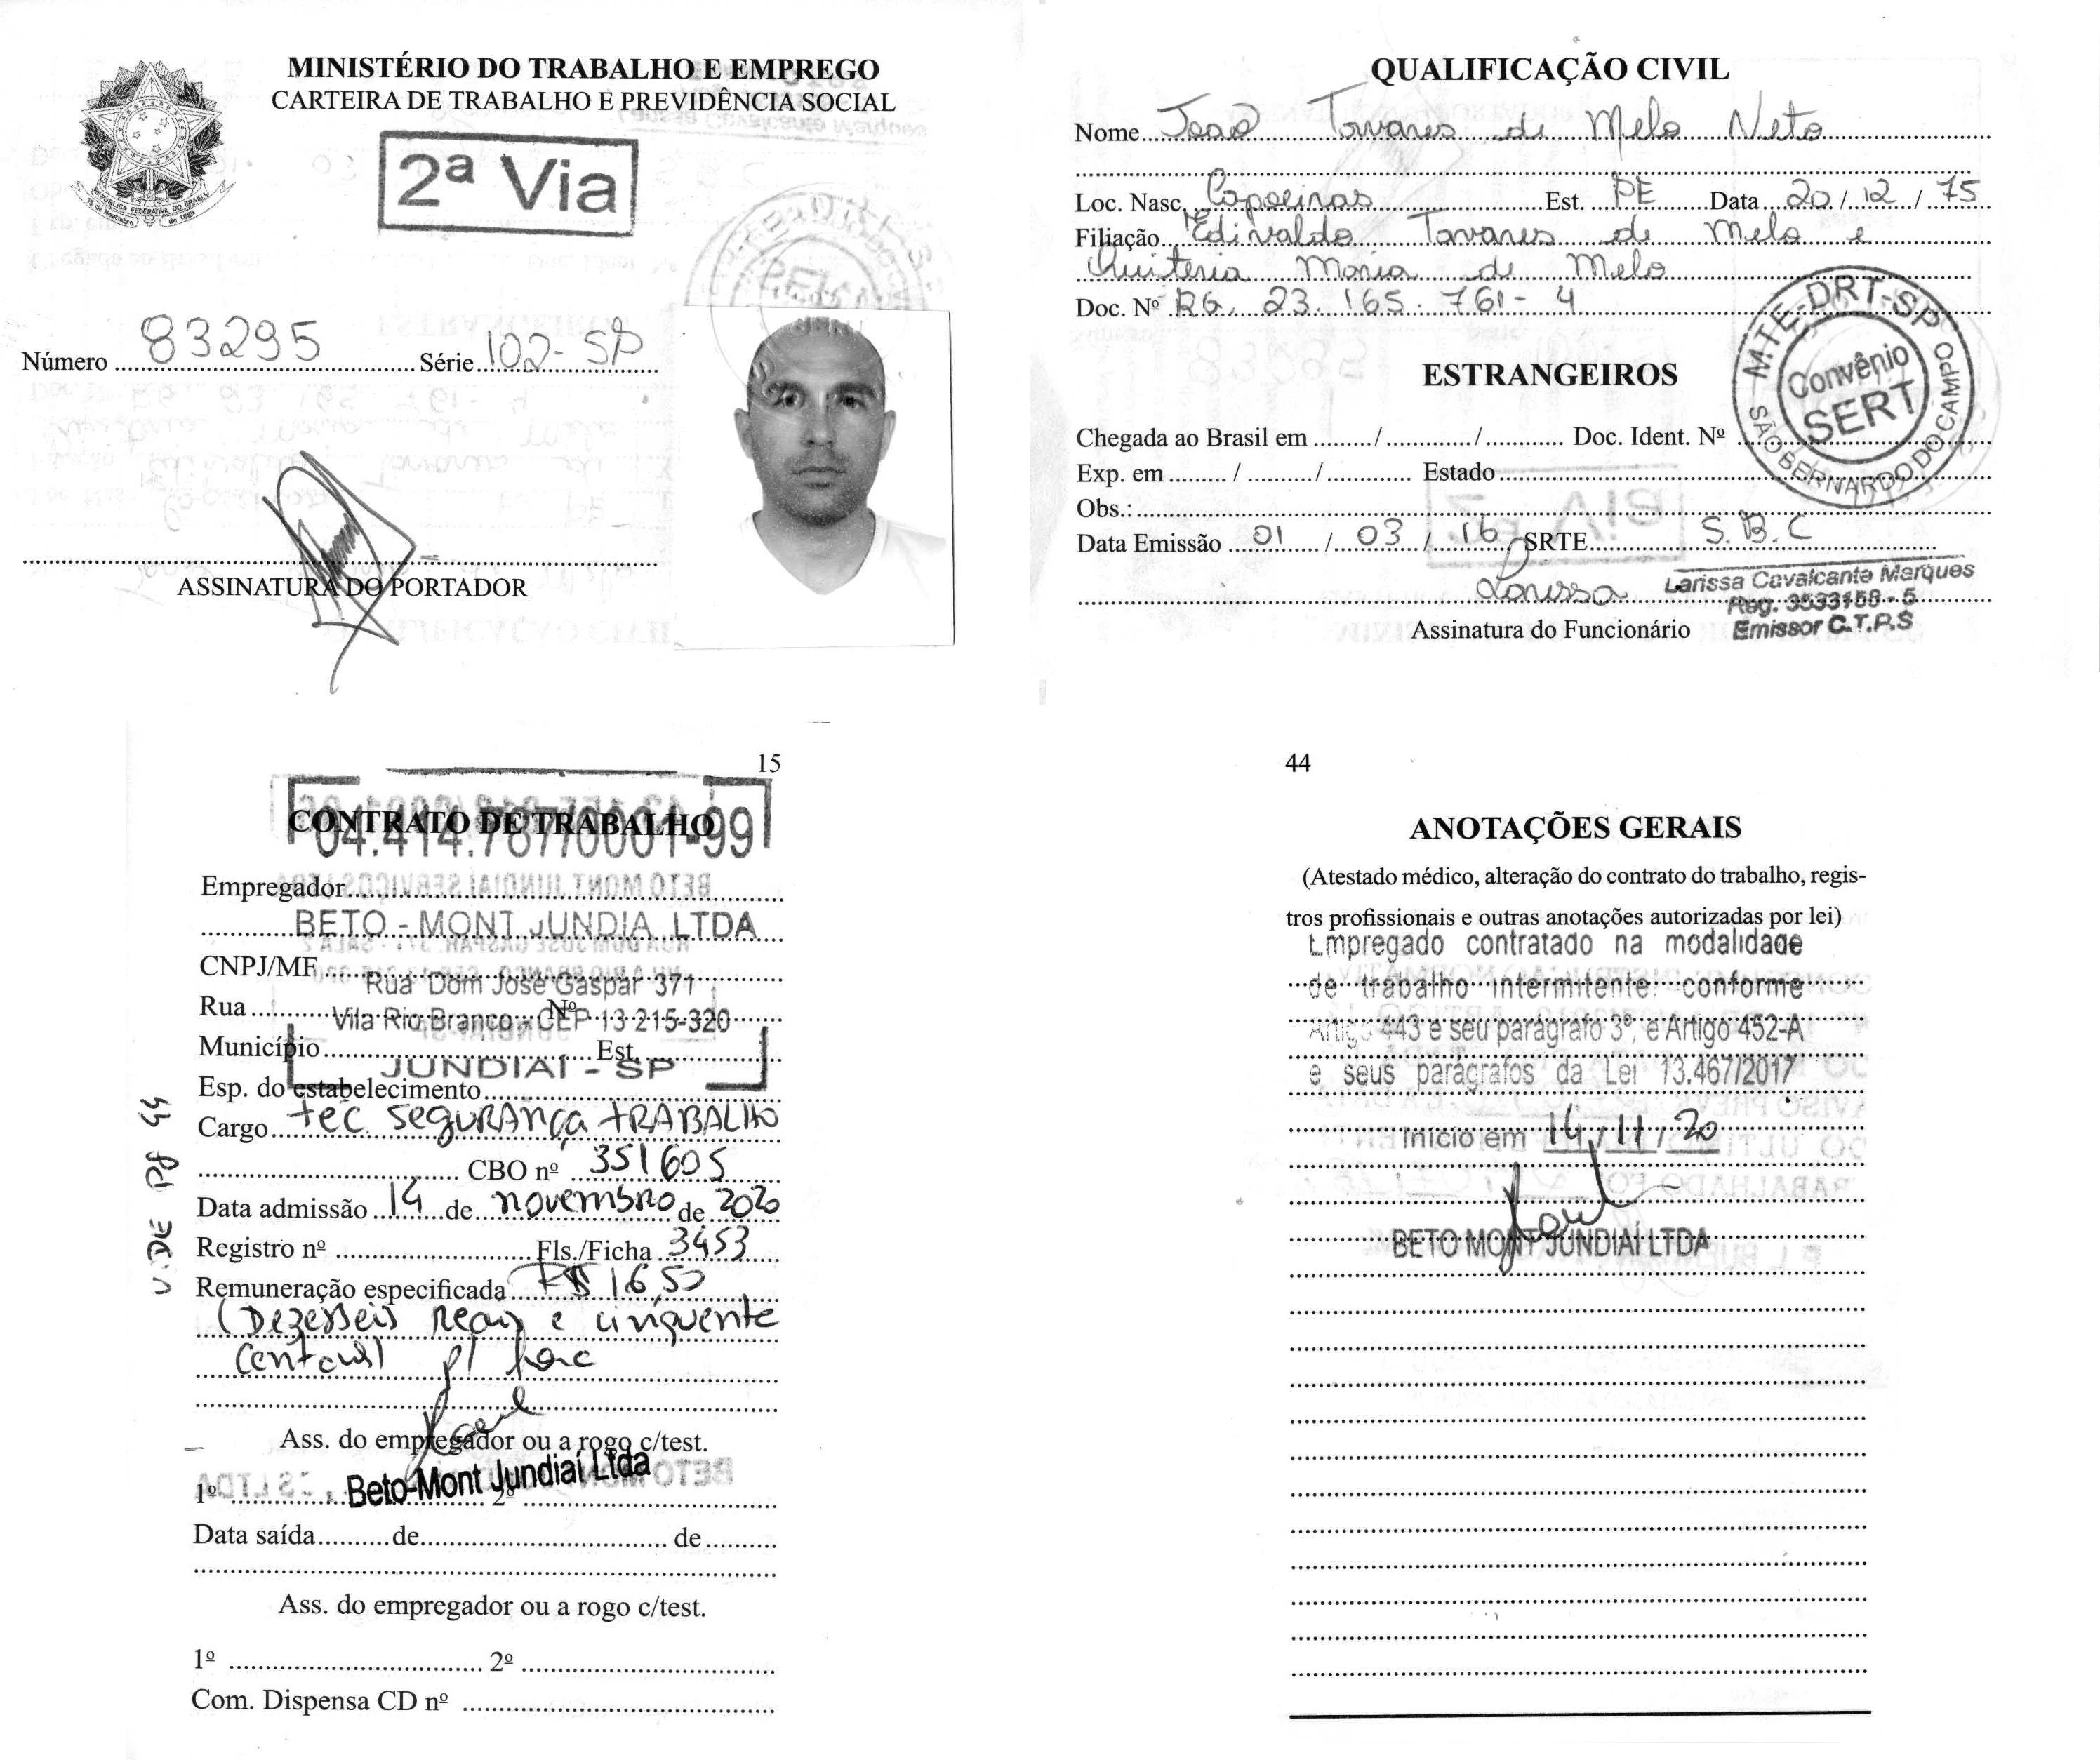 MINISTÉRIO DO TRABALHO E EMPREGO
CARTEIRA DE TRABALHO E PREVIDÊNCIA SOCIAL
2ª Via
REPÚBLICA FEDERATIVA DO BRASIL
15 de Novembro de 1889
Número 83295 Série 102-SP
ASSINATURA DO PORTADOR
QUALIFICAÇÃO CIVIL
Nome João Tavares de Melo Neto
Loc. Nasc. Capoeiras Est. PE Data 20/12/75
Filiação Edivaldo Tavares de Melo e
Quiteria Maria de Melo
Doc. Nº RG. 23.165.761-4
MTE-DRT-SP
Convênio
SERT
SÃO BERNARDO DO CAMPO
ESTRANGEIROS
Chegada ao Brasil em ......../............/........... Doc. Ident. Nº
Exp. em ......... / ........../............. Estado
Obs.:
Data Emissão 01/03/16 SRTE S.B.C
Larissa
Larissa Cavalcante Marques
Reg. 3533158-5
Emissor C.T.P.S
Assinatura do Funcionário
15
CONTRATO DE TRABALHO
04.414.787/0001-99
Empregador
BETO - MONT JUNDIA LTDA
CNPJ/MF
Rua Dom José Gaspar 371
Rua Nº
Vila Rio Branco - CEP 13 215-320
Município Est.
JUNDIAÍ - SP
Esp. do estabelecimento
Cargo tec segurança TRABALHO
CBO nº 351605
Data admissão 14 de novembro de 2020
Registro nº Fls./Ficha 3453
Remuneração especificada R$ 16,50
(Dezesseis reais e cinquente
centavos) p/ hora
Ass. do empregador ou a rogo c/test.
Beto-Mont Jundiaí Ltda
1º 2º
Data saída de de
Ass. do empregador ou a rogo c/test.
1º 2º
Com. Dispensa CD nº
V.DE Pg 44
44
ANOTAÇÕES GERAIS
(Atestado médico, alteração do contrato do trabalho, regis-
tros profissionais e outras anotações autorizadas por lei)
Empregado contratado na modalidade
de trabalho intermitente conforme
Artigo 443 e seu parágrafo 3º, e Artigo 452-A
e seus parágrafos da Lei 13.467/2017
Início em 14/11/20
BETO MONT JUNDIAÍ LTDA